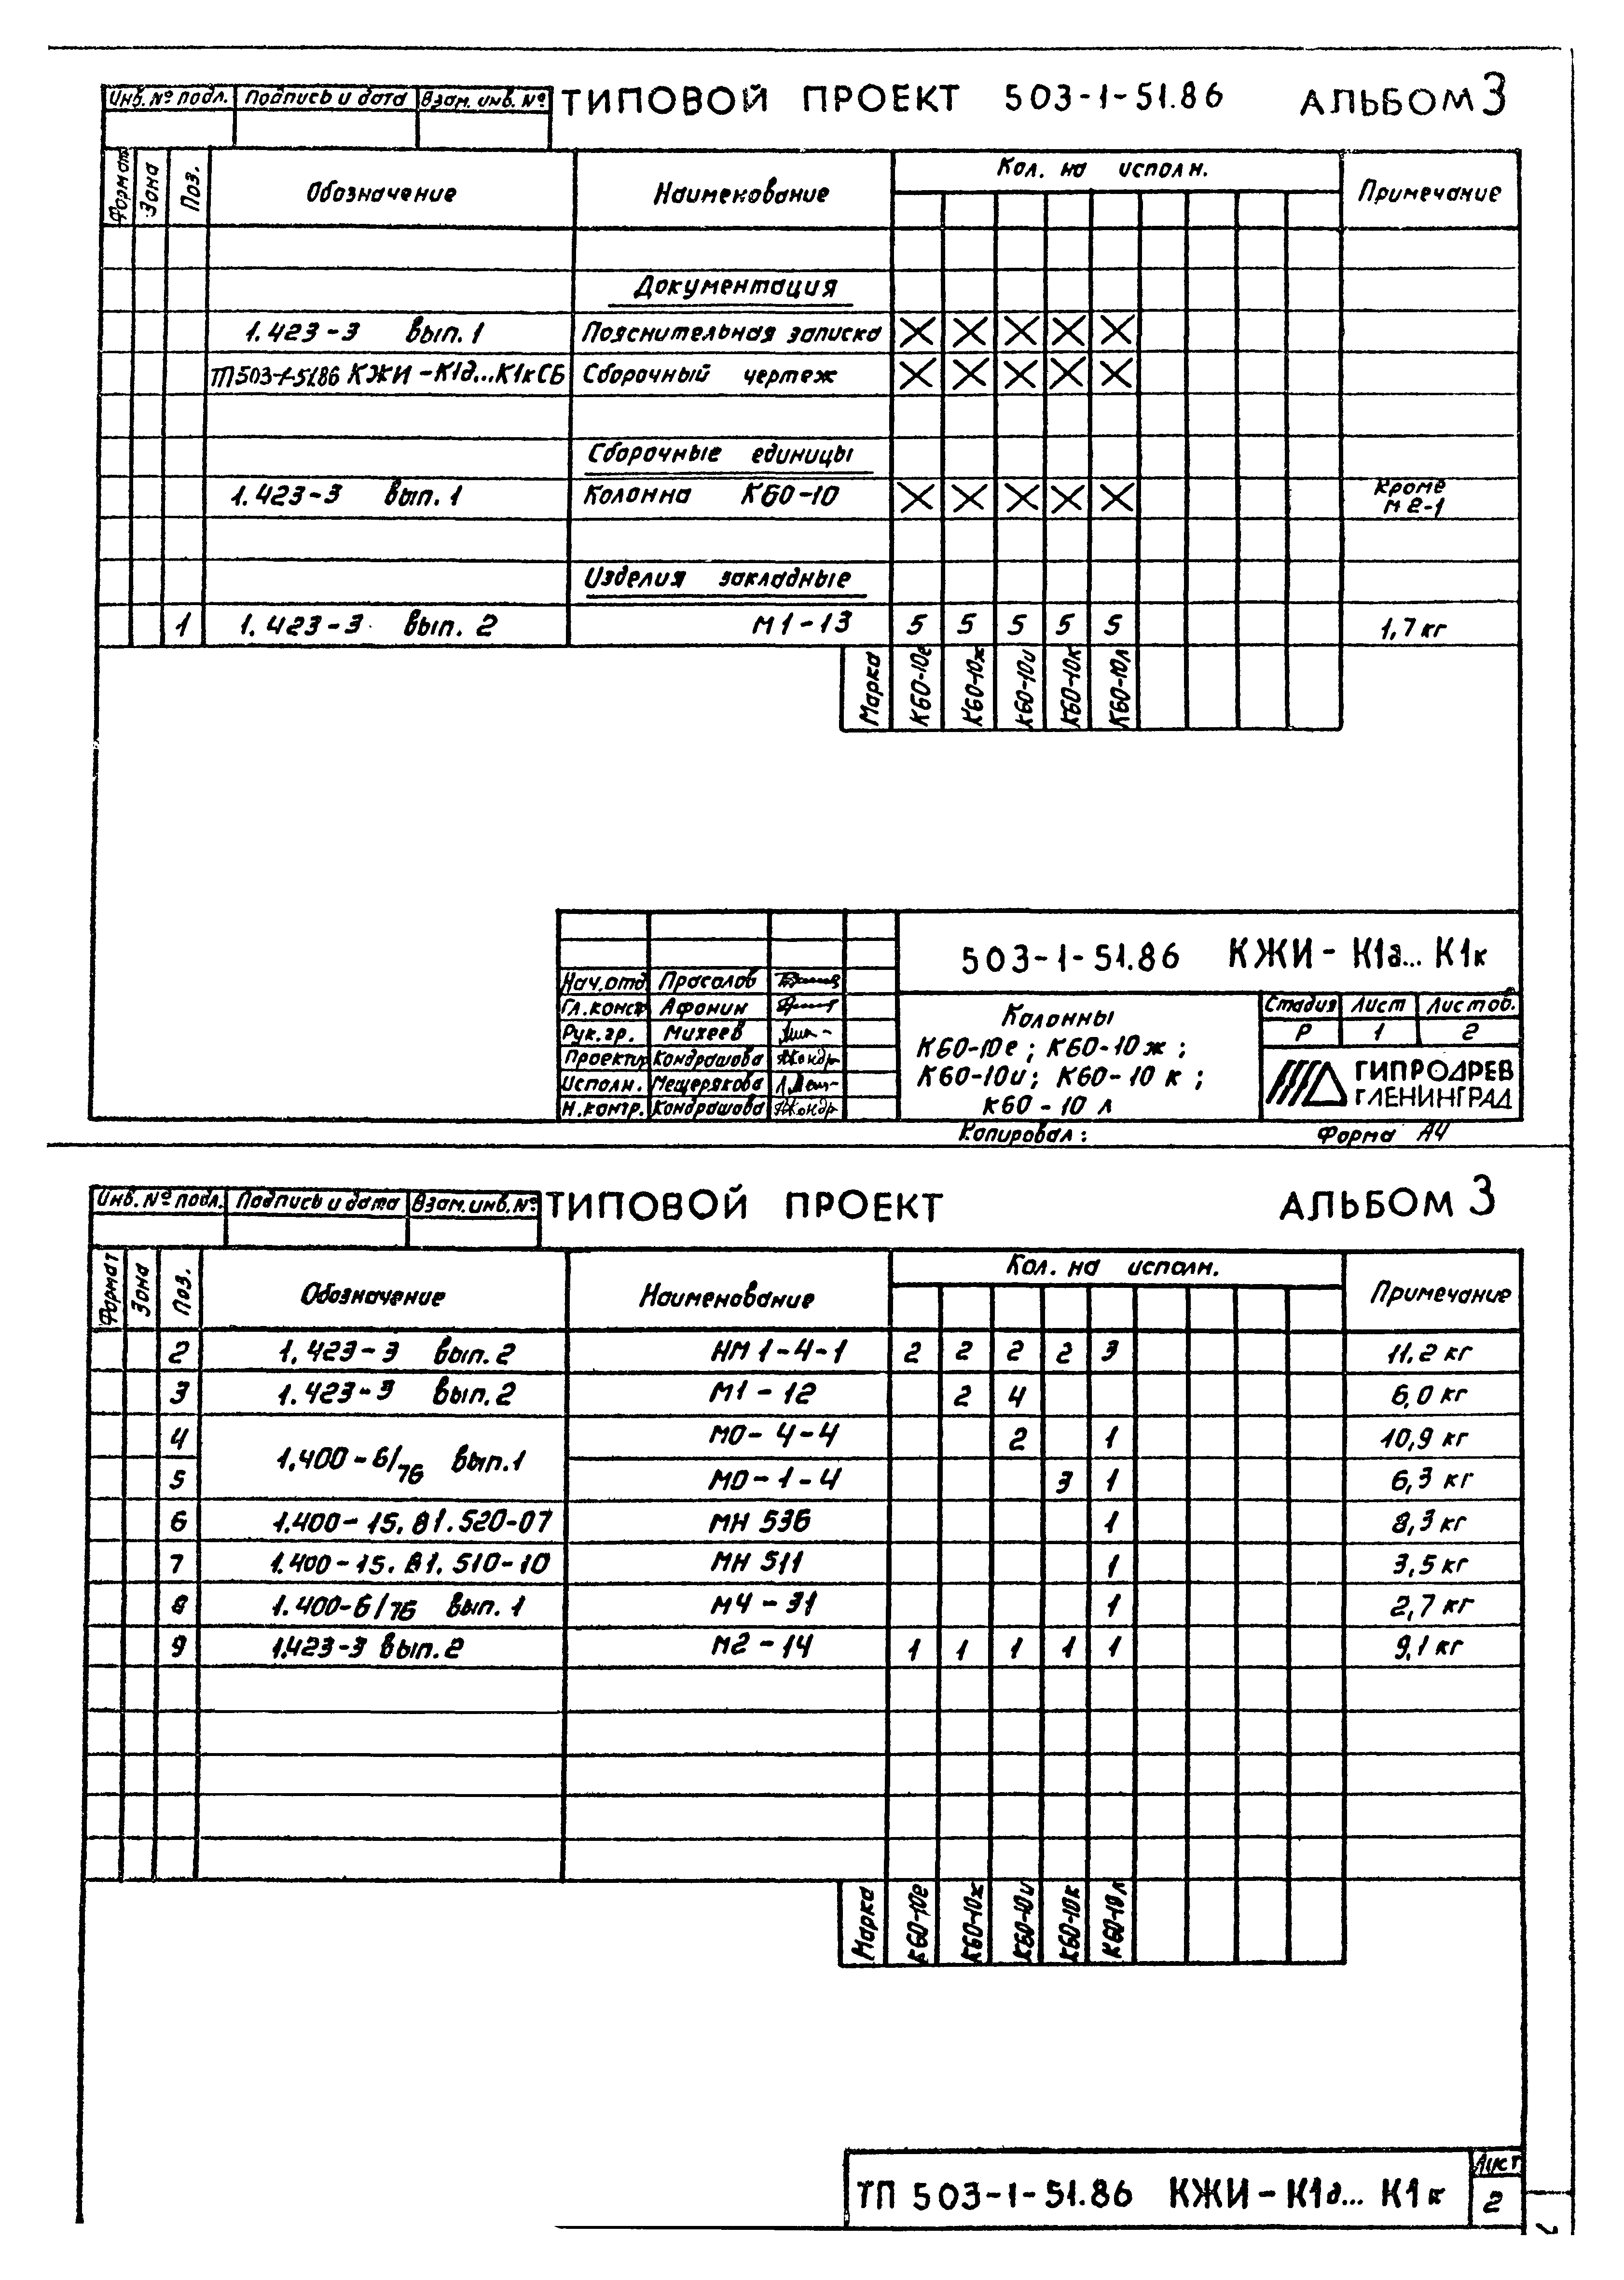 Инв. № подл. Подпись и дата Взам. инв. № ТИПОВОЙ ПРОЕКТ 503-1-51.86 АЛЬБОМ 3
Формат Зона Поз. Обозначение Наименование Кол. на исполн. Примечание
Документация
1.423-3 вып. 1 Пояснительная записка X X X X X
ТП 503-1-51.86 КЖИ-К1д...К1кСБ Сборочный чертеж X X X X X
Сборочные единицы
1.423-3 вып. 1 Колонна К60-10 X X X X X кроме М2-1
Изделия закладные
1 1.423-3 вып. 2 М1-13 5 5 5 5 5 1,7 кг
Марка К60-10е К60-10ж К60-10и К60-10к К60-10л
503-1-51.86 КЖИ-К1д... К1к
Нач.отд Прасолов
Гл.конст Афонин
Рук.гр. Михеев
Проектир Кондрашова
Исполн. Мещерякова
Н.контр. Кондрашова
Колонны
К60-10е; К60-10ж;
К60-10и; К60-10к;
К60-10л
Стадия Лист Листов.
Р 1 2
ГИПРОДРЕВ
Г.ЛЕНИНГРАД
Копировал: Форма А4
Инв. № подл. Подпись и дата Взам. инв. № ТИПОВОЙ ПРОЕКТ АЛЬБОМ 3
Формат Зона Поз. Обозначение Наименование Кол. на исполн. Примечание
2 1.423-3 вып. 2 НМ 1-4-1 2 2 2 2 3 11,2 кг
3 1.423-3 вып. 2 М1-12 2 4 6,0 кг
4 1.400-6/76 вып. 1 М0-4-4 2 1 10,9 кг
5 М0-1-4 3 1 6,3 кг
6 1.400-15. В1. 520-07 МН 536 1 8,3 кг
7 1.400-15. В1. 510-10 МН 511 1 3,5 кг
8 1.400-6/76 вып. 1 М4-31 1 2,7 кг
9 1.423-3 вып. 2 М2-14 1 1 1 1 1 9,1 кг
Марка К60-10е К60-10ж К60-10и К60-10к К60-10л
ТП 503-1-51.86 КЖИ-К1д... К1к Лист 2